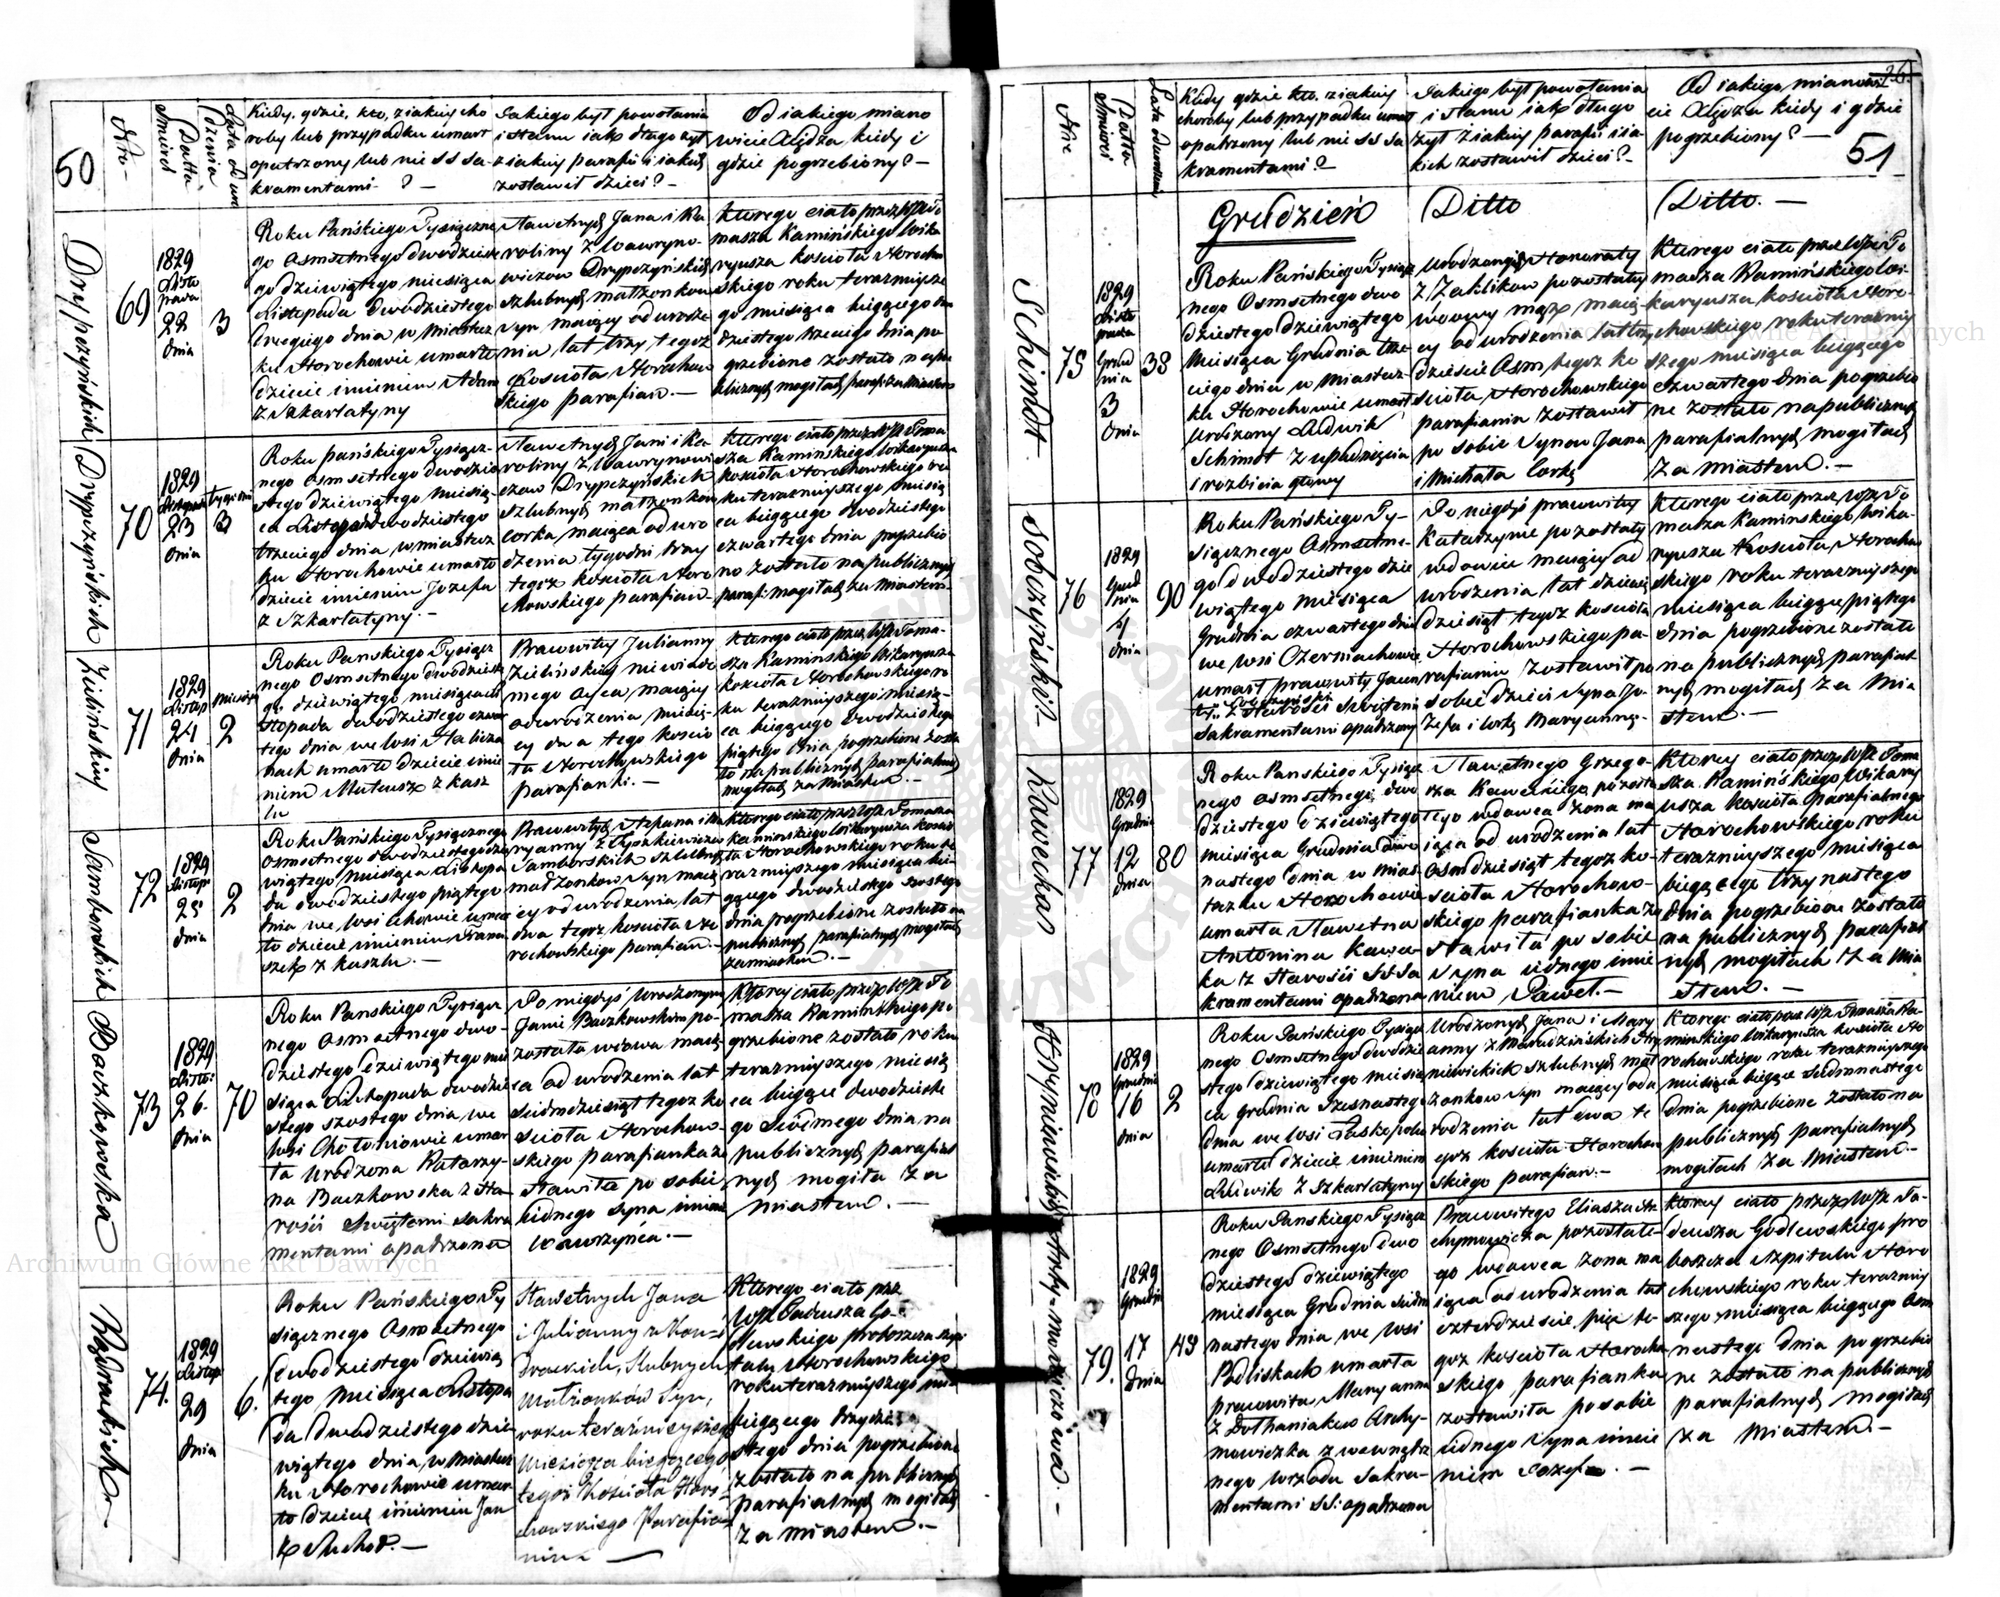 50
Nro
Datta Śmierci
Lata od uro dzenia
Kiedy, gdzie, kto, z iakiey cho
roby lub przypadku umarł
opatrzony lub nie SS Sa-
kramentami ? —
Jakiego był powołania
i stanu iak długo żył
z iakiey parafii i iakich
zostawił dzieci? —
Od iakiego miano
wicie Xiędza, kiedy i
gdzie pogrzebiony? —
Drypczyńskich
69
1829
Listo
pada
22
dnia
3
Roku Pańskiego Tysiączne
go Osmsetnego dwudzieste
go dziewiątego miesiąca
Listopada dwudziestego
drugiego dnia w Miastecz
ku Horochowie umarło
dziecie imieniem Adam
z Szkarlatyny
Sławetnych Jana i Ka
roliny z Wawryno-
wiczow Drypczyńskich
szlubnych małżonkow
syn maiący od urodze
nia lat trzy tegoż
Kościoła Horochow
skiego parafian. —
ktorego ciało przez WJX To
masza Kamińskiego Wika
ryusza kościoła Horocho
skiego roku teraznieysze
go miesiąca bieżącego dwu
dziestego trzeciego dnia po
grzebione zostało na pu
blicznych mogiłach paraf: za Miastem
Drypczyńskich
70
1829
Listopada
23
dnia
tygodni
3
Roku pańskiego Tysiącz-
nego Osmsetnego dwudzie
stego dziewiątego miesią
ca Listopada dwudziestego
trzeciego dnia w miastecz
ku Horochowie umarło
dziecie imieniem Jozefa
z Szkarlatyny. —
Sławetnych Jana i Ka
roliny z Wawrynowi
czow Drypczyńskich
szlubnych małżonkow
corka, maiąca od uro
dzenia tygodni trzy
tegoż kościoła Horo
chowskiego parafian —
ktorego ciało przez WJX Toma
sza Kamińskiego Wikaryusza
kościoła Horochowskiego ro
ku teraznieyszego miesią
ca bieżącego dwudziestego
czwartego dnia pogrzebio
no zostało na publicznych
paraf: mogiłach za Miastem
Zielińskiey
71
1829
Listop
24
dnia
miesięcy
2
Roku Pańskiego Tysiącz
nego Osmsetnego dwudzieste
go dziewiątego miesiąca Li
stopada dwudziestego czwar
tego dnia we Wsi Halicza
nach umarło dziecie imie
niem Mateusz z kasz
lu
Pracowitey Julianny
Zielińskiey niewiado
mego oyca, maiący
od urodzenia, miesię-
cy dwa tego kościo
ła Horochowskiego
parafianki. —
ktorego ciało przez WJX Toma-
sza Kamińskiego Wikaryusza
kościoła Horochowskiego ro
ku teraznieyszego miesią-
ca bieżącego dwudziestego
piątego dnia pogrzebione zosta
ło na publicznych parafialnych
mogiłach za Miastem. —
Samborskich
72
1829
Listop
25
dnia
2
Roku Pańskiego Tysiącznego
Osmsetnego dwudziestego dzie
wiątego miesiąca Listopa
da dwudziestego piątego
dnia we Wsi Uchowie umar
ło dziecie imieniem Franci
szek z kaszlu. —
Samborskich szlubnych
małżonkow syn maią
cy od urodzenia lat
dwa tegoż kościoła Ho
rochowskiego parafian. —
ktorego ciało przez WJX Tomasza
Kamińskiego Wikaryusza kościo
ła Horochowskiego roku te
raznieyszego miesiąca bie
żącego dwudziestego szostego
dnia pogrzebione zostało na
publicznych parafialnych mogiłach
za miastem. —
Baczkowska
73
1829
Listo:
26.
dnia
70
Roku Pańskiego Tysiącz
nego Osmsetnego dwu-
dziestego dziewiątego mie
siąca Listopada dwudzie
stego szostego dnia we
Wsi Chołoniowie umar
ła Urodzona Katarzy-
na Baczkowska z Sta-
rości Swiętemi Sakra
mentami opatrzona
Po niegdyś Urodzonym
Janie Baczkowskim po-
została wdowa maią
ca od urodzenia lat
siedmdziesiąt tegoż ko
ścioła Horochow-
skiego parafianka zo
stawiła po sobie
iednego syna imie
Wawrzyńca. —
Ktorey ciało przez WJX To
masza Kamińskiego po
grzebione zostało roku
teraznieyszego miesią
ca bieżące dwudzieste
go siódmego dnia na
publicznych parafial
nych mogiła za
miastem. —
74.
1829
Listop
29
dnia
6.
Roku Pańskiego Ty
sięcznego Osmsetnego
dwudziestego dziewią
tego miesiąca Listopa
da dwudziestego dzie
wiątego dnia, w Miastecz
ku Horochowie umar
ło dziecię imieniem Jan
z Suchot. —
Sławetnych Jana
Szlubnych
Małżonków Syn,
roku teraznieyszego
miesiąca bieżącego
tegoż Kościoła Horo-
chowskiego Parafia-
nina —
Ktorego ciało prz
WJX Tadeusza Go-
dlewskiego proboszcza szpi
talu Horochowskiego
roku teraznieyszego mie-
bieżącego trzydzie
stego dnia pogrzebione
zostało na publicznych
parafialnych mogiłach
za miastem. —
26.
51
Nro
Datta Śmierci
Lata od urodzenia
Kiedy gdzie kto, z iakiey
choroby lub przypadku umarł
opatrzony lub nie SS Sa
kramentami?
Jakiego był powołania
i stanu iak długo
żył z iakiey parafii i ia-
kich zostawił dzieci? —
Od iakiego mianowi
cie Xiędza kiedy i gdzie
pogrzebiony? —
Grudzień
Ditto
Ditto. —
Schimdt
75
1829
Grud
nia
3
dnia
38
Roku Pańskiego Tysiącz
nego Osmsetnego dwu
dziestego dziewiątego
Miesiąca Grudnia trze
ciego dnia w Miastecz
ku Horochowie umarł
Urodzony Ludwik
Schimdt z upadnięcia
i rozbicia głowy
Urodzoney Honoraty
z Zaklikow pozostały
wdowy mąż maią-
cy od urodzenia lat trzy
dzieście Osm, tegoż ko
ścioła Horochowskiego
parafianin zostawił
po sobie Synow Jana
i Michała Corkę
Ktorego ciało przez WJX To
masza Kamińskiego Wi-
karyusza kościoła Horo-
chowskiego roku teraźniey
szego miesiąca bieżącego
czwartego dnia pogrzebio
ne zostało na publicznych
parafialnych mogiłach
za Miastem. —
Sobczyński
76
1829
Grud
nia
4
dnia
90
Roku Pańskiego Ty-
siącznego Osmsetne-
go dwudziestego dzie
wiątego Miesiąca
Grudnia czwartego dnia
we Wsi Czerniachowie
umarł pracowity Jan
Sobczyński
z Starości Swiętemi
Sakramentami opatrzony
Po niegdyś pracowitey
Katarzynie pozostały
wdowiec maiący od
urodzenia lat dziewięć
dziesiąt tegoż kościoła
Horochowskiego pa-
rafianin zostawił po
sobie dzieci Syna Jo
zefa i Corkę Maryannę. —
Ktorego ciało przez WJX To
masza Kaminskiego Wika-
ryusza Kościoła Horochow
skiego roku teraznieyszego
miesiąca bieżące piątego
dnia pogrzebione zostało
na publicznych parafial
nych mogiłach za Mia
stem. —
Kawecka
77
1829
Grudnia
12
dnia
80
Roku Pańskiego Tysiącz
nego Osmsetnego dwu
dziestego dziewiątego
miesiąca Grudnia dwu
nastego dnia w Mias
teczku Horochowie
umarła Sławetna
Antonina Kawec-
ka z Starości SS Sa
kramentami opatrzona
Sławetnego Grzego-
rza Kaweckiego pozosta
łego wdowca żona ma
iąca od urodzenia lat
osmdziesiąt tegoż ko-
ścioła Horochow-
skiego parafianka zo
stawiła po sobie
syna iednego imie
niem Paweł. —
Ktorey ciało przez WJX Toma
sza Kamińskiego Wikary
usza Kościoła parafialnego
Horochowskiego roku
teraznieyszego miesiąca
bieżącego trzynastego
dnia pogrzebione zostało
na publicznych parafial
nych mogiłach za Mia
stem. —
78
1829
Grudnia
16
dnia
2
Roku Pańskiego Tysiącz
nego Osmsetnego dwudzie
stego dziewiątego miesią
ca Grudnia Szesnastego
dnia we Wsi
umarło dziecie imieniem
Ludwik z Szkarlatyny
Urodzonych Jana i Mary
anny z
szlubnych mał
żonkow syn maiący od u
rodzenia lat dwa te
goż kościoła Horochow
skiego parafian. —
Ktorego ciało przez WJX Tomasza Ka-
mińskiego Wikaryusza kościoła Ho
rochowskiego roku teraznieyszego
miesiąca bieżące siedmnastego
dnia pogrzebione zostało na
publicznych parafialnych
mogiłach za Miastem. —
79.
1829
Grudnia
17
dnia
45
Roku Pańskiego Tysiącz
nego Osmsetnego dwu
dziestego dziewiątego
miesiąca Grudnia siedm
nastego dnia we Wsi
Podliskach umarła
pracowita Maryanna
nego wrzodu Sakra-
mentami SS: opatrzona
Pracowitego Eliasza
pozostałe-
go wdowca żona ma
iąca od urodzenia lat
czterdzieście pięć te-
goż kościoła Horocho
wskiego parafianka
zostawiła po sobie
iednego Syna imie
niem Jozef. —
ktorey ciało przez WJX Ta-
deusza Godlewskiego pro
boszcza Szpitalu Horo
chowskiego roku terazniey
szego miesiąca bieżącego Osm
nastego dnia pogrzebio
ne zostało na publicznych
parafialnych mogiłach
za Miastem. —
Archiwum Główne Akt Dawnych